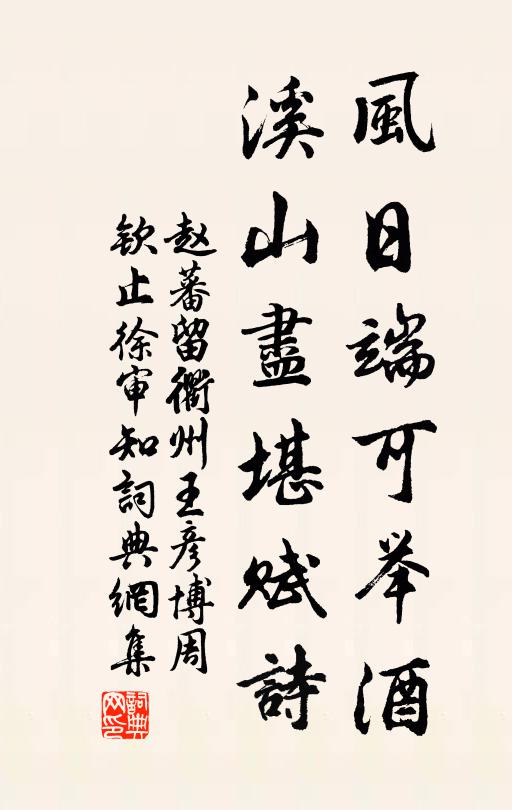 風日端可举酒
溪山盡堪賦詩
赵蕃留衢州王彦博周
钦止徐审知詞典網集
詞典
网印